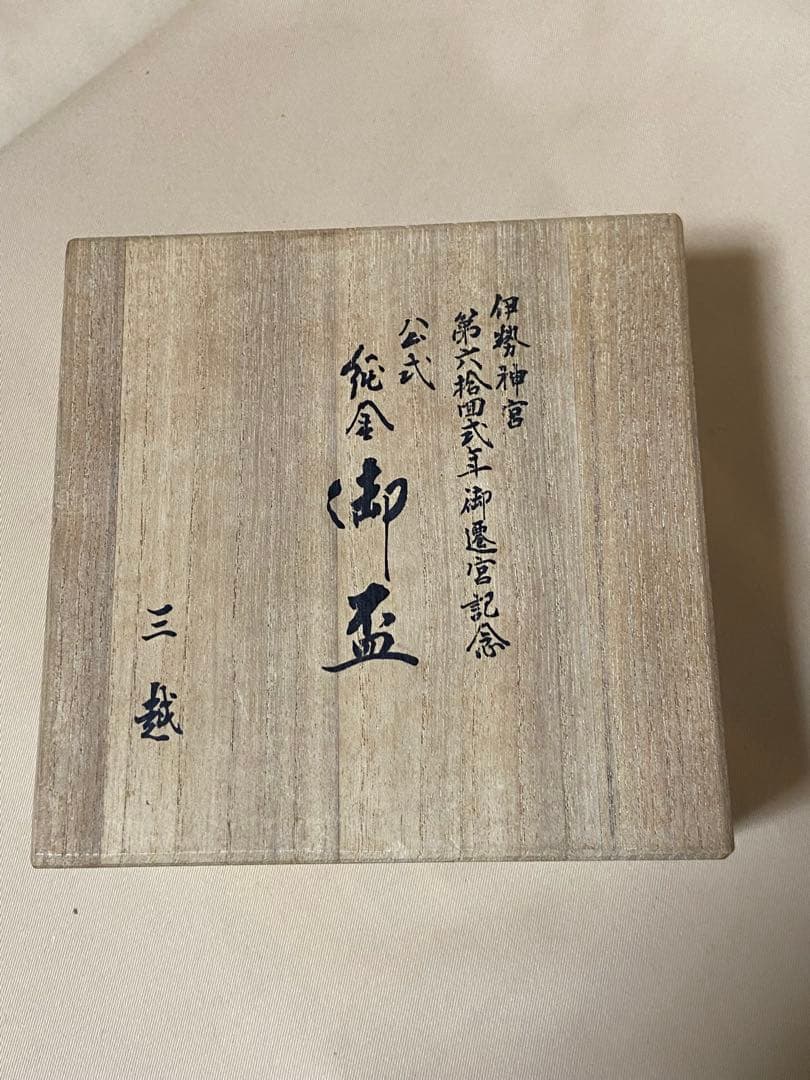 伊勢神宮
第六拾回式年御遷宮記念
公式
純金御盃
三越